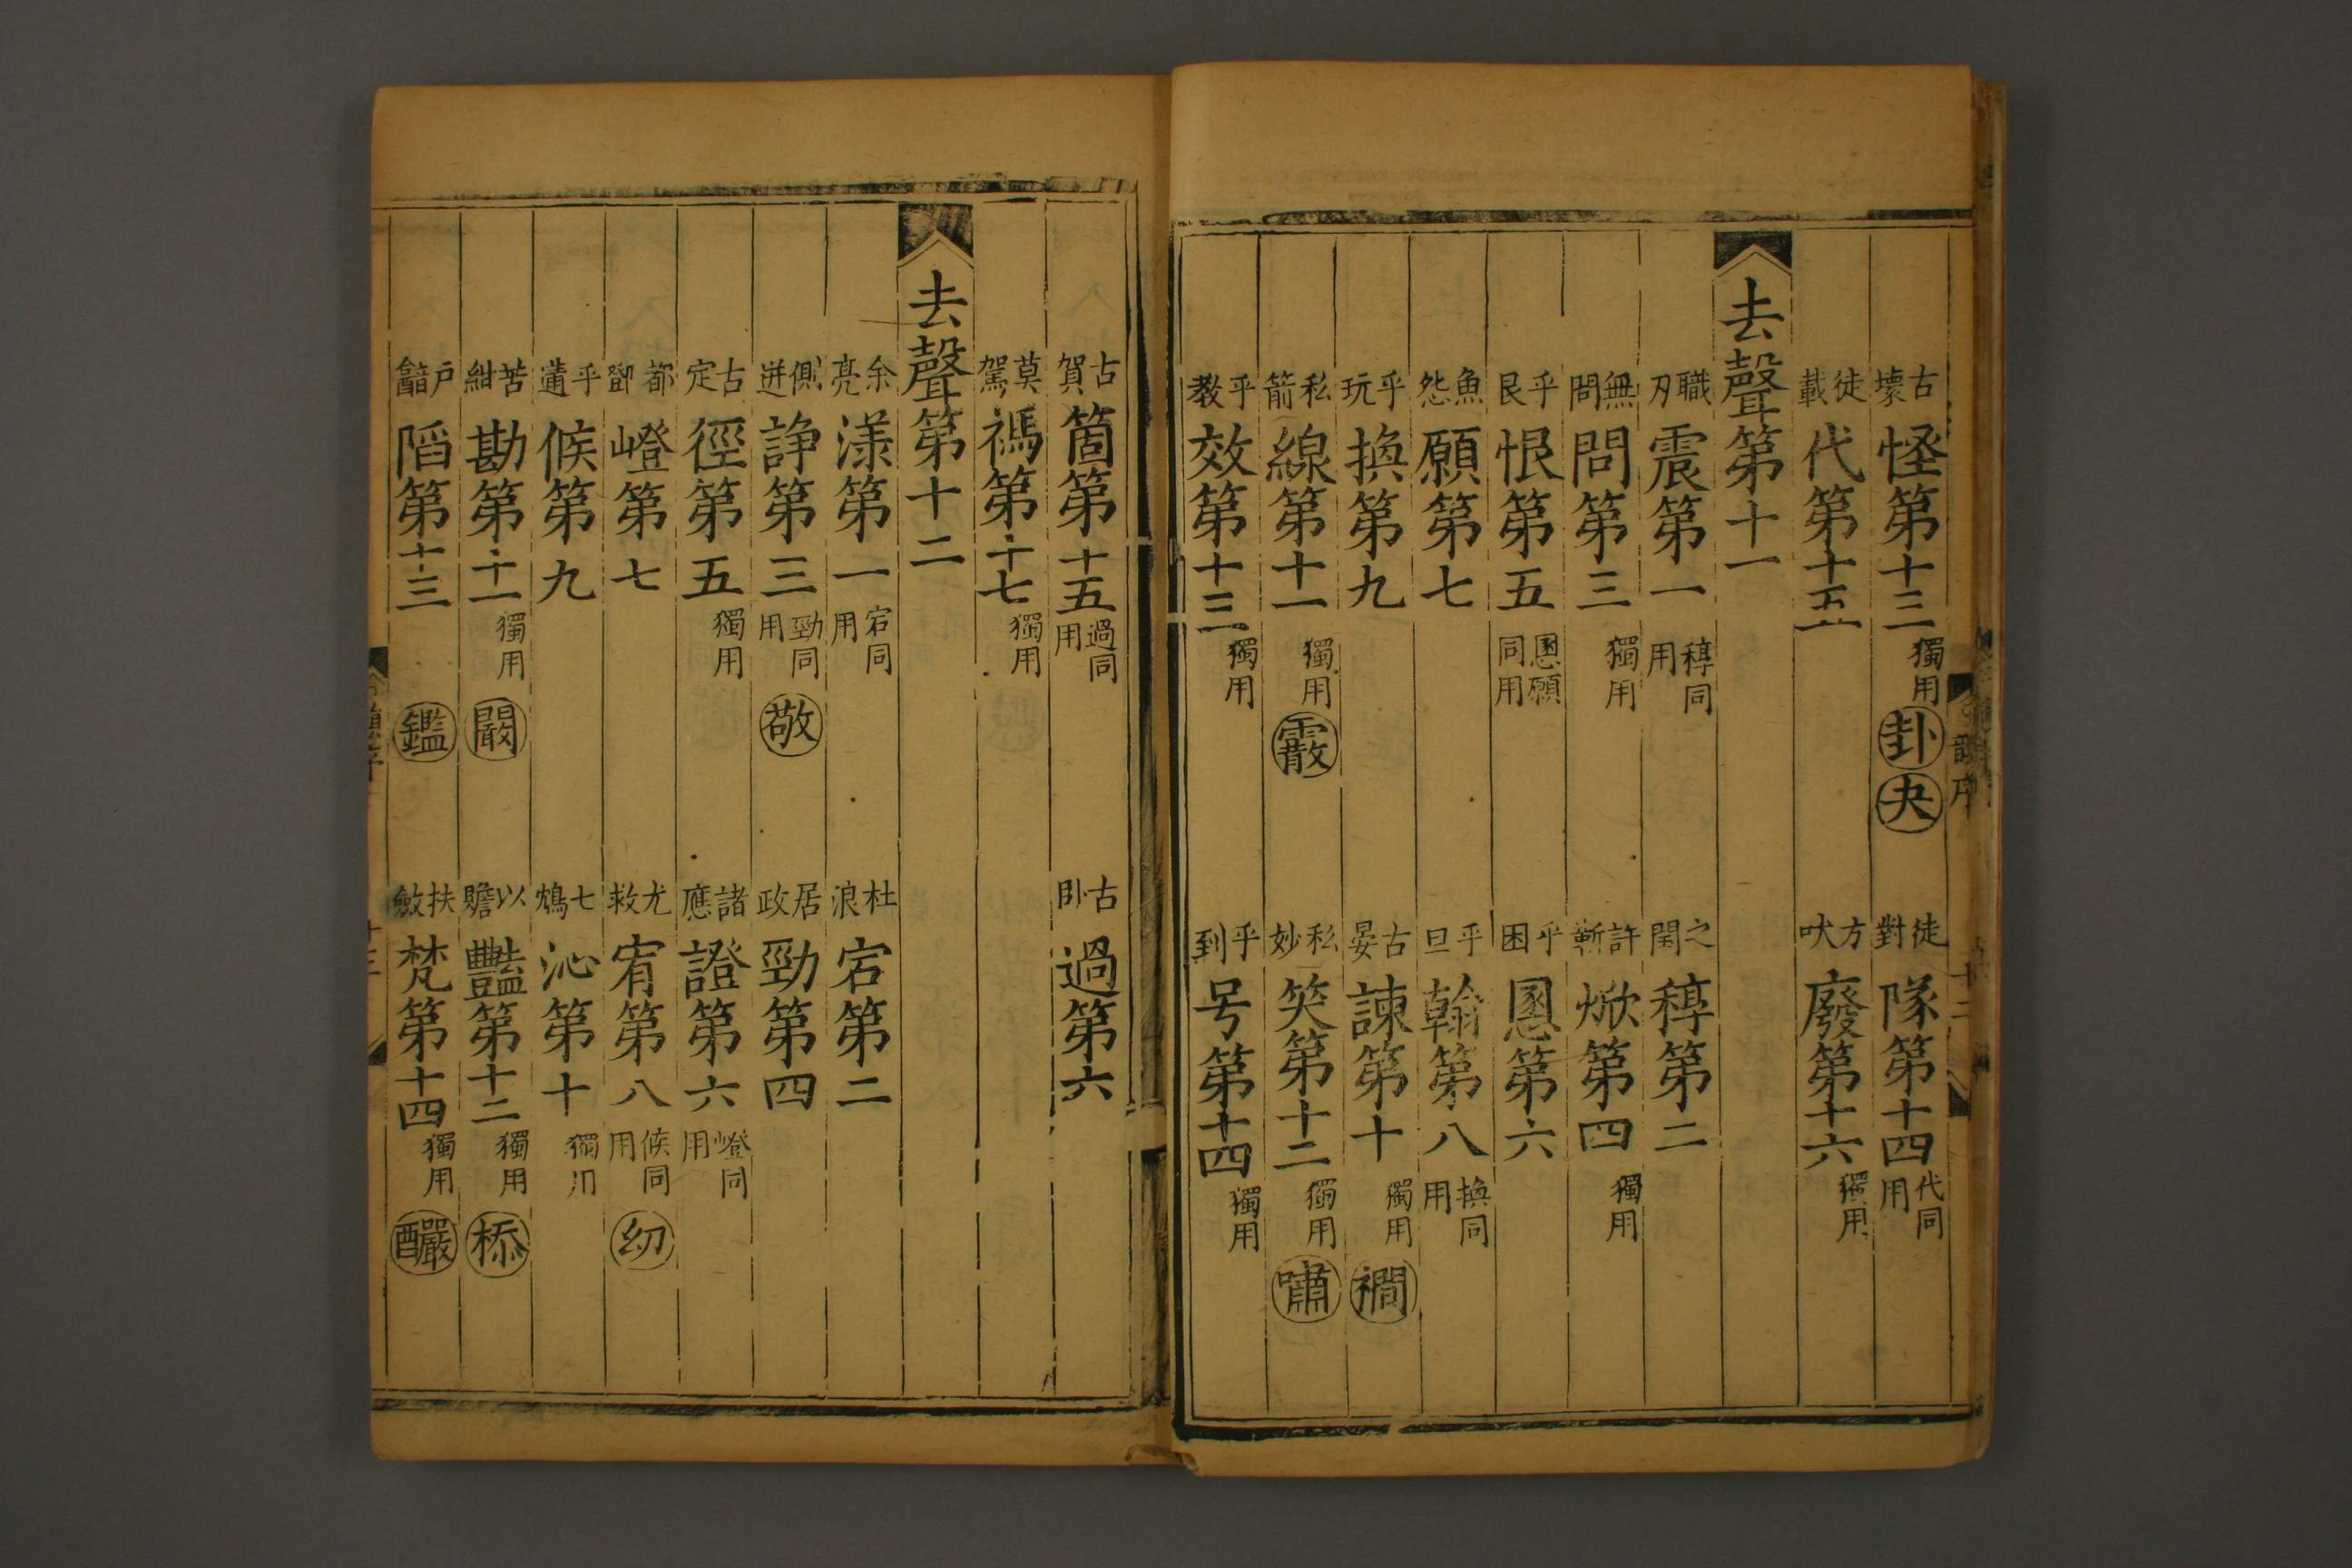 古壞怪第十三獨用卦夬　徒對隊第十四代同用
徒載代第十五　方吠廢第十六獨用
去聲第十一
職刃震第一稕同用　之閏稕第二
無問問第三獨用　許靳焮第四獨用
乎艮恨第五慁願同用　乎困慁第六
魚怨願第七　乎旦翰第八換同用
乎玩換第九　古晏諫第十獨用襉
私箭線第十一獨用霰　私妙笑第十二獨用嘯
乎教效第十三獨用　乎到号第十四獨用
古賀箇第十五過同用　古臥過第六
莫駕禡第十七獨用
去聲第十二
余亮漾第一宕同用　杜浪宕第二
側迸諍第三勁同用敬　居政勁第四
古定徑第五獨用　諸應證第六嶝同用
都鄧嶝第七　尤救宥第八候同用幼
乎遘候第九　七鴆沁第十獨用
苦紺勘第十一獨用闞　以贍豔第十二獨用㮇
戶韽陷第十三鑑　扶敛梵第十四獨用釅